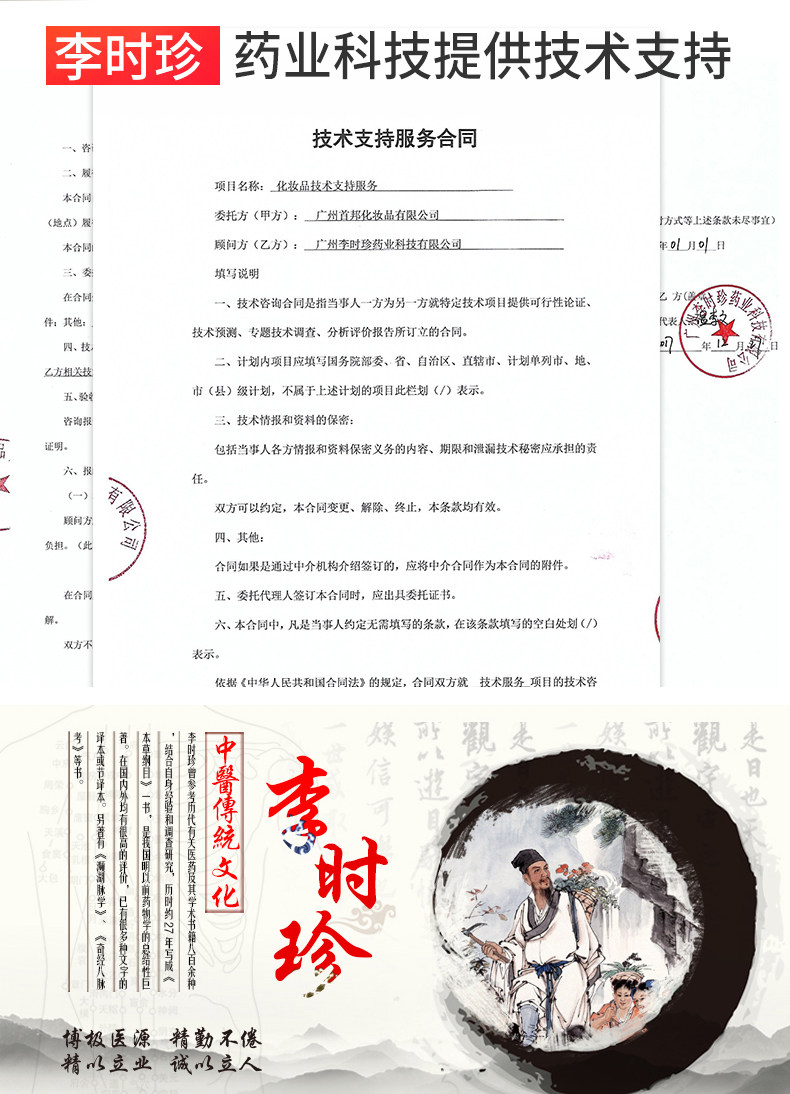 李时珍 药业科技提供技术支持
技术支持服务合同
项目名称：化妆品技术支持服务
委托方（甲方）：广州首邦化妆品有限公司
顾问方（乙方）：广州李时珍药业科技有限公司
填写说明
一、技术咨询合同是指当事人一方为另一方就特定技术项目提供可行性论证、
技术预测、专题技术调查、分析评价报告所订立的合同。
二、计划内项目应填写国务院部委、省、自治区、直辖市、计划单列市、地、
市（县）级计划，不属于上述计划的项目此栏划（/）表示。
三、技术情报和资料的保密：
包括当事人各方情报和资料保密义务的内容、期限和泄漏技术秘密应承担的责
任。
双方可以约定，本合同变更、解除、终止，本条款均有效。
四、其他：
合同如果是通过中介机构介绍签订的，应将中介合同作为本合同的附件。
五、委托代理人签订本合同时，应出具委托证书。
六、本合同中，凡是当事人约定无需填写的条款，在该条款填写的空白处划（/）
表示。
依据《中华人民共和国合同法》的规定，合同双方就 技术服务 项目的技术咨
一、咨
二、履
本合同
（地点）履
本合同
三、委
在合同
件：其他：
四、技
乙方相关技
五、验收
咨询报
证明。
六、报
（一）
顾问方
负担。（此
在合同
解。
双方不
有限公司
付方式等上述条款未尽事宜）
年01月01日
乙 方(盖
代表人
年12月 日
广州李时珍药业科技有限公司
李时珍
中醫傳統文化
李时珍曾参考历代有关医药及其学术书籍八百余种
，结合自身经验和调查研究，历时约27年写成《
本草纲目》一书，是我国明以前药物学的总结性巨
著。在国内外均有很高的评价，已有很多种文字的
译本或节译本。另著有《濒湖脉学》、《奇经八脉
考》等书。
博极医源 精勤不倦
精以立业 诚以立人